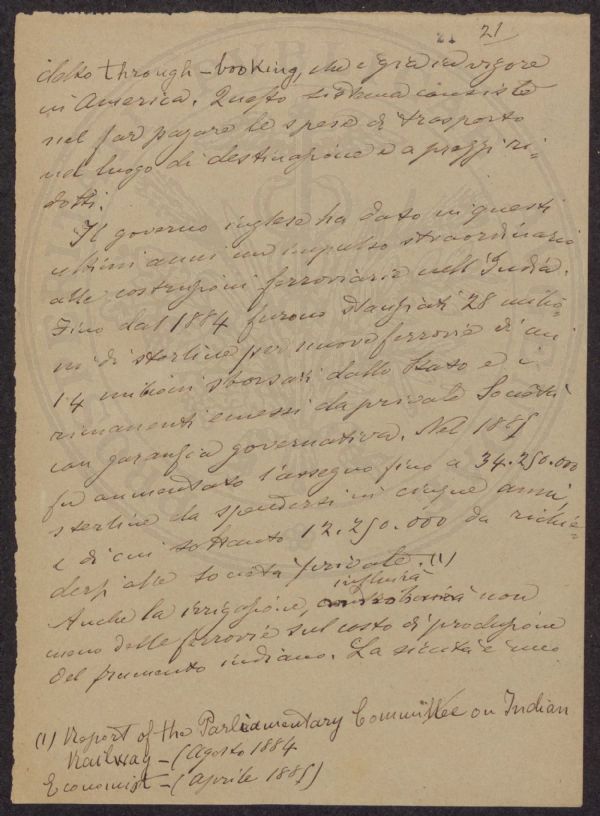 21 21
detto through-booking, che è già in vigore
in America. Questo sistema consiste
nel far pagare le spese di trasporto
nel luogo di destinazione e a prezzi ri-
dotti.
Il governo inglese ha dato in questi
ultimi anni un impulso straordinario
alle costruzioni ferroviarie nell'India.
Fino dal 1884 furono stanziati 28 milio-
ni di sterline per nuove ferrovie di cui
14 milioni sborsati dallo Stato e i
rimanenti emessi da private Società
con garanzia governativa. Nel 1885
fu aumentato l'assegno fino a 34.250.000
sterline da spendersi in cinque anni,
e di cui soltanto 12.250.000 da richie-
dersi alle società private. (1)
influirà
Anche la irrigazione, non
meno delle ferrovie sul costo di produzione
del frumento indiano. La siccità è uno
(1) Report of the Parliamentary Committee on Indian
Railway - (Agosto 1884
Economist - (Aprile 1885)